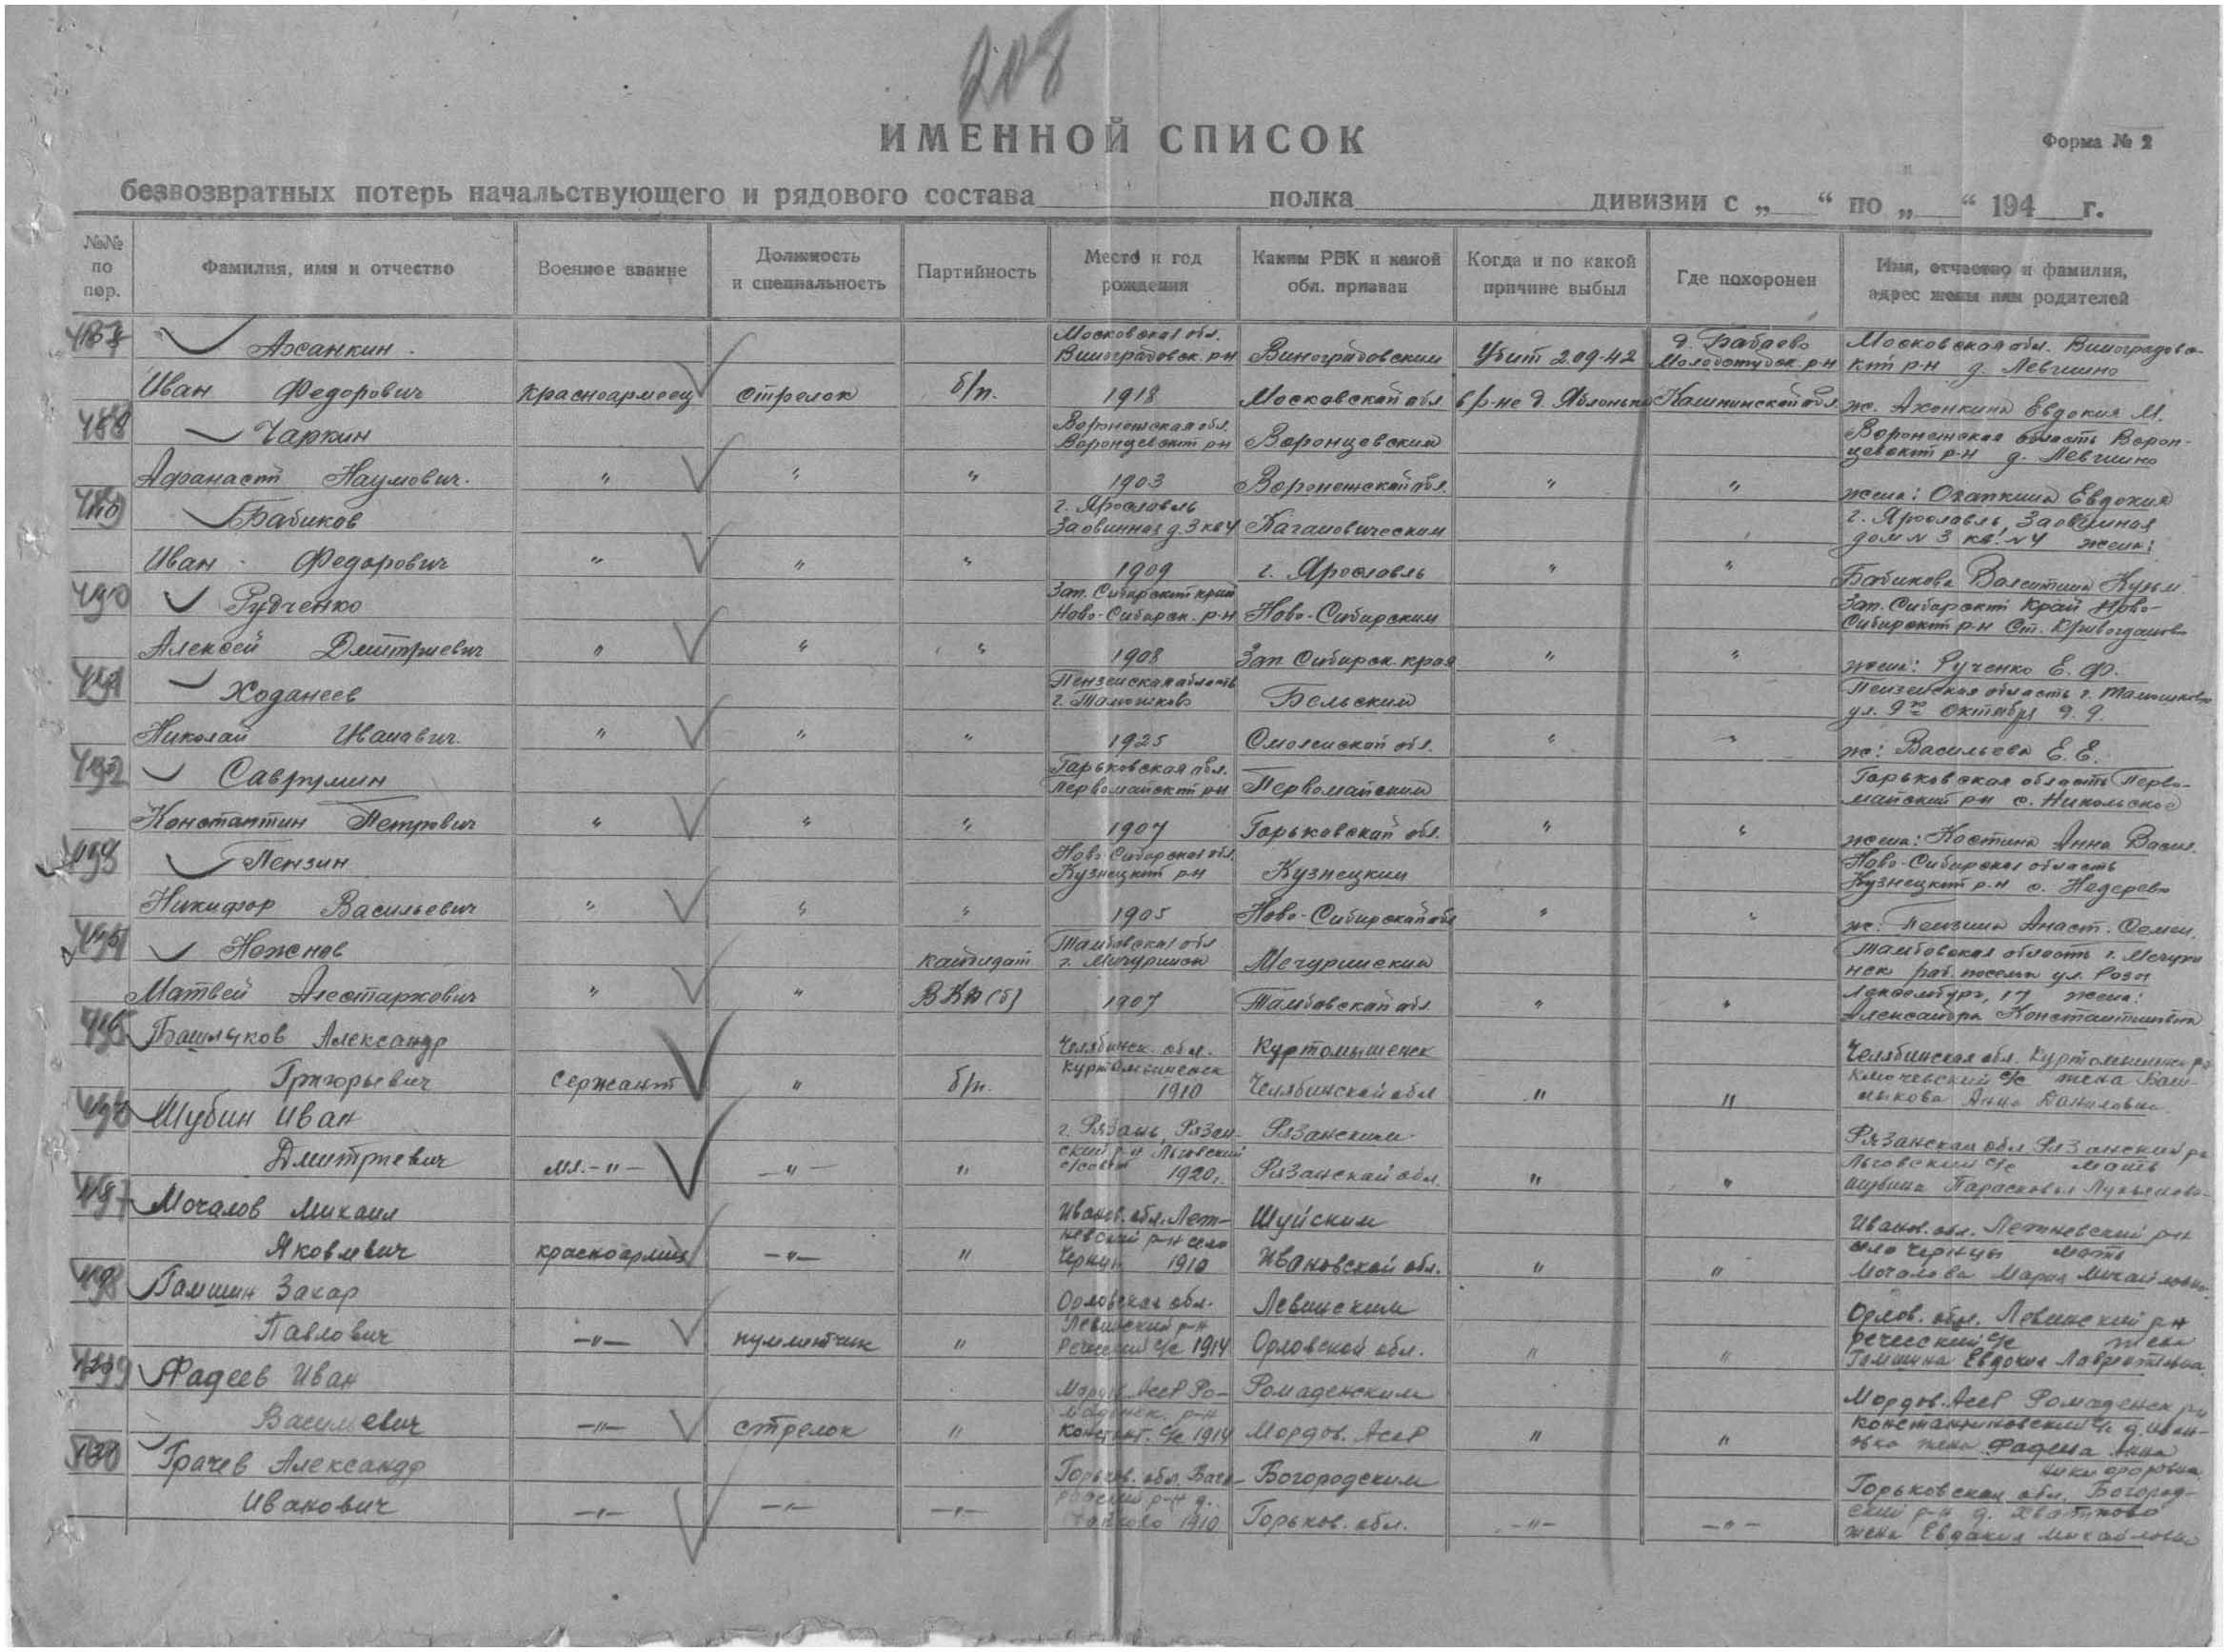 208
ИМЕННОЙ СПИСОК
Форма № 2
безвозвратных потерь начальствующего и рядового состава полка дивизии с „ “ по „ “ 194 г.
№№ по пор.
Фамилия, имя и отчество
Военное звание
Должность и специальность
Партийность
Место и год рождения
Каким РВК и какой обл. призван
Когда и по какой причине выбыл
Где похоронен
Имя, отчество и фамилия, адрес жены или родителей
487 Ажанкин Московская обл. Виноградовск. р-н Виноградовским Убит 2.09.42 д. Бабаево Молодотудск. р-н Московская обл. Виноградовс-
кий р-н д. Левшино
Иван Федорович красноармеец стрелок б/п. 1918 Московской обл. в р-не д. ж. Евдокия М.
488 Чаркин Воронежская обл. Воронцевский рн Воронцовским Воронежская область Ворон-
цевский р-н д. Левшино
Афанасий Наумович. " " " 1903 Воронежской обл. " " жена: Евдокия
489 Бабиков г. Ярославль Заовинная д. 3 кв 4 Кагановическим г. Ярославль, Заовинная
дом N 3 кв. N 4 жена:
Иван Федорович " " " 1909 г. Ярославль " " Бабикова Валентина Кузьм.
490 Рудченко Зап. Сибирский край Ново-Сибирск. р-н Ново-Сибирским Зап. Сибирский край Ново-
Сибирский р-н ст.
Алексей Дмитриевич " " " 1908 Зап. Сибирск. края " " жена: Рученко Е. Ф.
491 Ходанеев Пензенская область г. Бельским Пензенская область г.
ул. Октября д. 9.
Николай Иванович. " " " 1925 Смоленской обл. " " ж: Васильева Е. Е.
492 Горьковская обл. Первомайский рн Первомайским Горьковская область Перво-
майский рн с. Никольское
Константин Петрович " " " 1907 Горьковской обл. " " жена: Костина Анна Васил.
493 Пензин Ново-Сибирская обл. Кузнецкий р-н Кузнецким Ново-Сибирская область
Кузнецкий р-н с.
Никифор Васильевич " " " 1905 Ново-Сибирской обл " " ж. Пензина Анаст. Семен.
494 Ножнов кандидат Тамбовская обл г. Мичуринск Мечуринским Тамбовская область г. Мечури
нск раб. поселок ул. Розы
Матвей " " ВКП(б) 1907 Тамбовской обл. " " 17 жена:
Александра Константиновна
495 Башлыков Александр Челябинск. обл. Куртомышенск Челябинская обл.
Григорьевич сержант " б/п. 1910 Челябинской обл " " с/с жена Баш-
лыкова Анна Даниловна
496 Шубин Иван г. Рязань, Рязан-
ский р-н Льговский Рязанским Рязанская обл Рязанский рн
Льговский с/с мать
Дмитриевич мл. -"- -"- " с/совет 1920г. Рязанской обл. " " Шубина Парасковья
497 Мочалов Михаил Иванов. обл. Шуйским Иванов. обл. р-н
село Чернцы мать
Яковлевич красноармеец -"- " 1910 Ивановской обл. " " Мочалова Мария Михайловна
498 Гамшин Захар Орловская обл. Левинским Орлов. обл. Левинский рн
с/с жена
Павлович -"- " с/с 1914 Орловской обл. " " Гамшина Евдокия Лаврентьевна
499 Фадеев Иван Мордов. Асср Ро- Ромаденским Мордов. Асср Ромаденск рн
Константиновский с/с д. Иван-
Васильевич -"- стрелок " Констант. с/с 1914 Мордов. Асср " " овка жена Фадеева Анна
Никифоровна
500 Грачев Александр Горьков. обл. Богородским Горьковская обл. Богород-
ский р-н д.
Иванович -"- -"- -"- 1910 Горьков. обл. -"- -"- жена Евдокия Михайловна